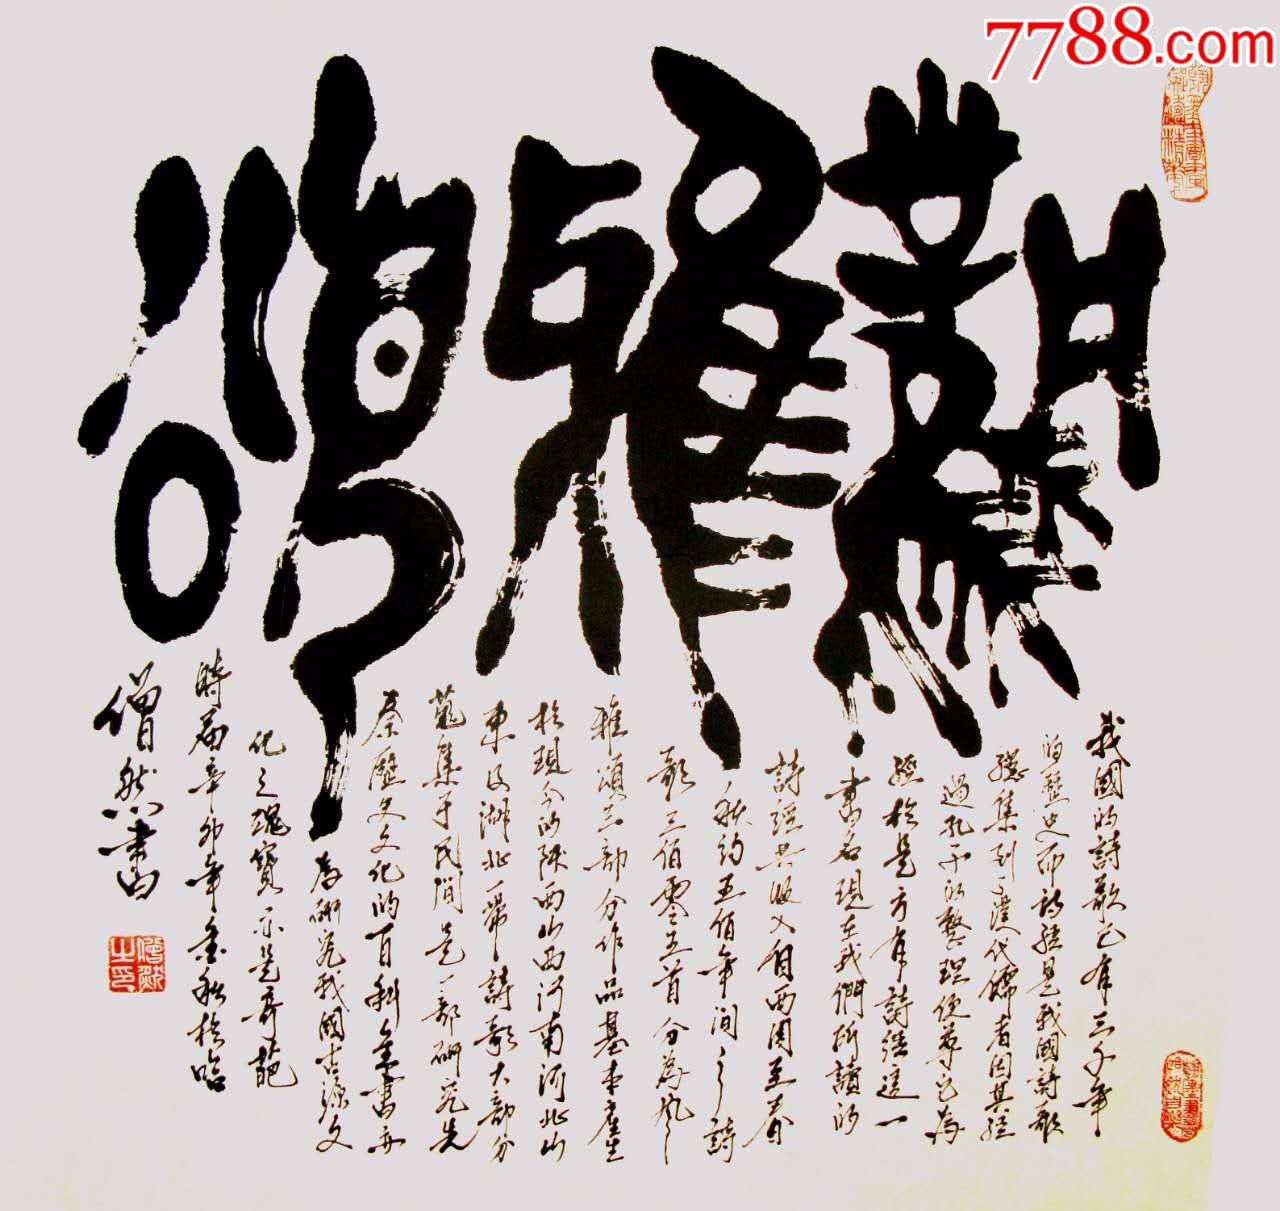 7788.com
我國的詩歌已有三千年
的歷史而詩經是我國詩歌
總集到漢代儒者因其經
過孔子的整理便尊它為
經於是方有詩經這一
書名現在我們所讀的
詩經共收入自西周至春
秋約五佰年間之詩
歌三佰零五首分為風
雅頌三部分作品基本產生
於現今的陝西山西河南河北山
東及湖北等詩歌大部分
蒐集于民間是一部研究先
秦歷史文化的百科全書亦
為研究我國古源文
化之瑰寶亦是奇葩
時届辛卯年金秋於
僧然書